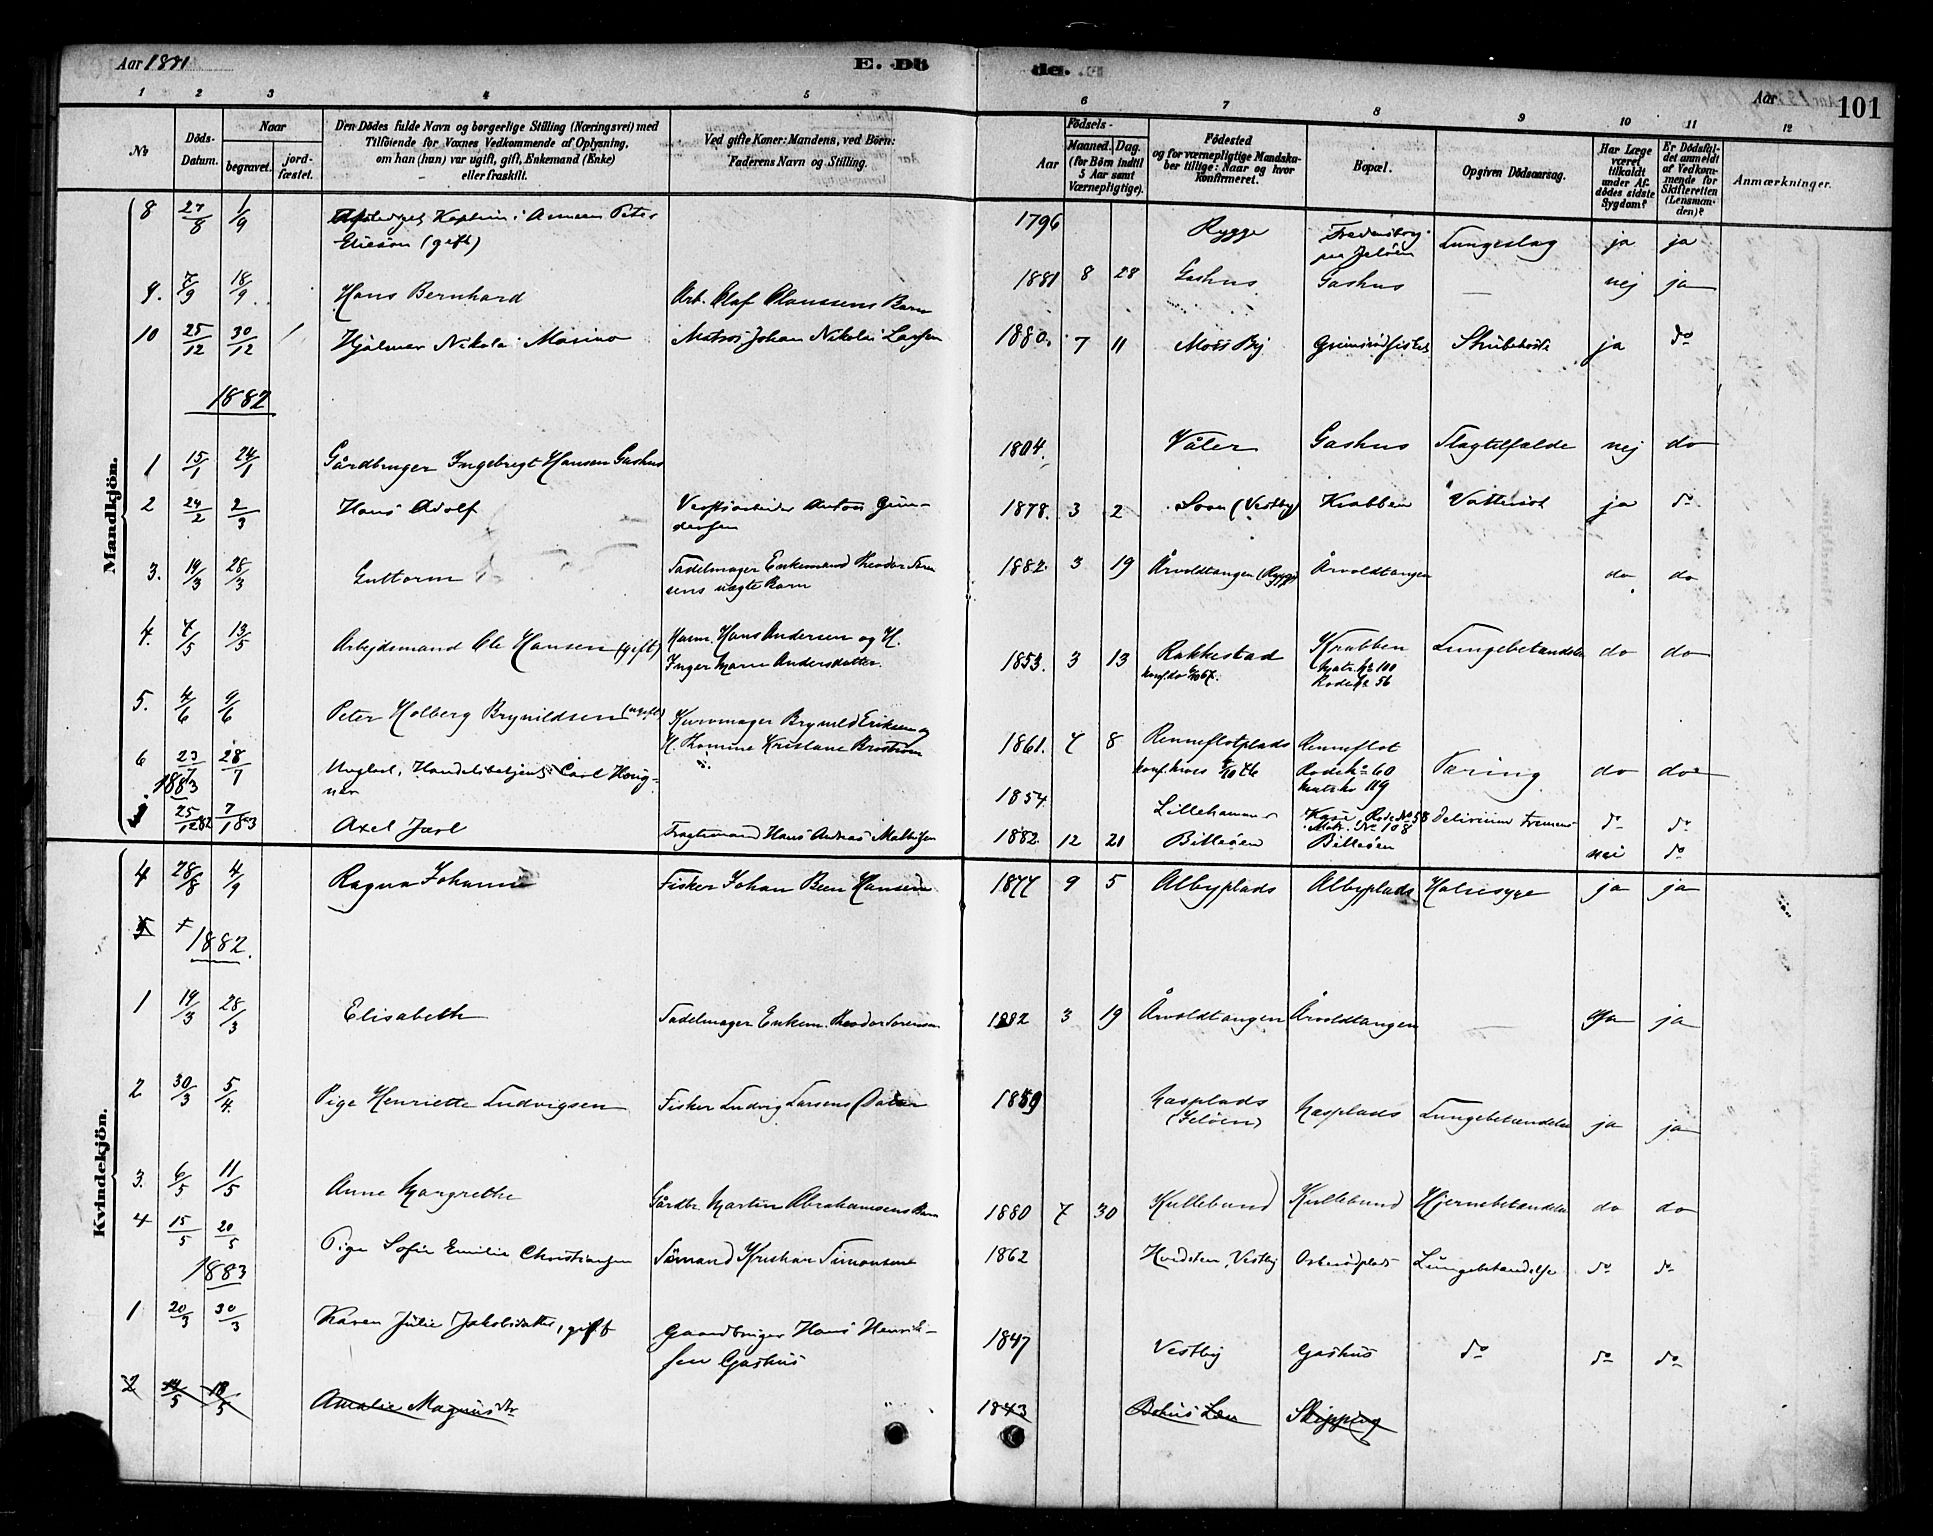 Aar 1881 E. Dö de. Aar 101
1 2 3 4 5 6 7 8 9 10 11 12
No Döds-Datum. Naar begravet. jord-fæstet. Den Dödes fulde Navn og borgerlige Stilling (Næringsvei) med Tilföiende for Voxnes Vedkommende af Oplysning, om han (hun) var ugift, gift, Enkemand (Enke) eller fraskilt. Ved gifte Koner: Mandens, ved Börn: Faderens Navn og Stilling. Födsels- Aar Maaned. Dag. (for Börn indtil 5 Aar samt Værnepligtige). Födested og for værnepligtige Mandskaber tillige: Naar og hvor konfirmeret. Bopæl. Opgiven Dödsaarsag. Har Læge været tilkaldt under Afdödes sidste Sygdom? Er Dödsfaldet anmeldt af Vedkommende for Skifteretten (Lensmanden)? Anmærkninger.
Mandkjön.
8 27/8 1/9 Kaptein i Armeen Peter 1796 Rygge Lungeslag ja ja
(gift) paa Jelöen
9. 7/9 18/9. Hans Bernhard Arb. Olaf Olaussens Barn 1881 8 28 Gashus Gashus — nej ja
10 25/12 30/12 Hjalmar Nikolai Marino Matros Johan Nikolai Larsen 1880. 7 11 Moss By Strubehoste ja do
1882
1 15/1 24/1 Gårdbruger Ingebregt Hansen Gashus 1804. Våler Gashus Slagtilfælde nej do
2 24/2 2/3 Hans Adolf Verftsarbeider Anton Gun- 1878. 3 2 Soon (Vestby) Krabben Vattersot ja do
dersen
3. 19/3 28/3 Guttorm Sadelmager Enkemand Theodor Søren 1882. 3 19 Årvoldtangen (Rygge) Årvoldtangen do do
sens uægte Barn
4. 7/5 13/5 Arbejdsmand Ole Hansen (gift) Hans Andersen og H. 1853. 3 13 Rakkestad Krabben Lungebetændelse do do
Inger Marie Andersdatter. Matr. No 100
Rode No 56
5. 4/6 9/6 Peter Holberg Brynildsen (ugift) Kurvmager Brynild Eriksen og 1861. 7 8 Renneflotplads Renneflot Tæring do do
H. Kristiane Rode No 60
Matr. No 119
6 23/7 28/7 Ungkarl, Handelsbetjent Carl 1854. Lillehammer Rode No 58 delirium tremens do do
Matr. No 108
1883
1 25/12 82 7/1 83 Axel Jarl Fragtemand Hans Andreas 1882. 12 21 Billeöen Billeöen nei do
Kvindekjön.
4 28/8 4/9 Ragna Johanne Fisker Johan Hansen 1877 9 5 Albyplads Albyplads Halssyge ja ja
5 +
1882.
1 19/3 28/3 Elisabeth Sadelmager Enkem. Theodor Sørensen 1882 3 19 Årvoldtangen Årvoldtangen — Ja ja
2 30/3 5/4. Pige Henriette Ludvigsen Fisker Ludvig Larsens Datter 1859 Næsplads Næsplads Lungebetændelse ja ja
(Jelöen)
3. 6/5 11/5 Anne Margrethe Gårdbr. Martin Abrahamsens Barn 1880 7 30 Kullebund Kullebund Hjernebetændelse do do
4 15/5 20/5 Pige Sofie Emilie Christiansen Sömand Kristian Simonsen 1862 Hvidsten, Vestby Lungebetændelse do do
1883
1 20/3 30/3 Karen Julie Jakobsdatter, gift Gaardbruger Hans Henrik- 1847 Vestby Gashus do do do
sen Gashus
2 14/5 18/5 Amalie Magnusdtr 1843 Bohus Len Skipping